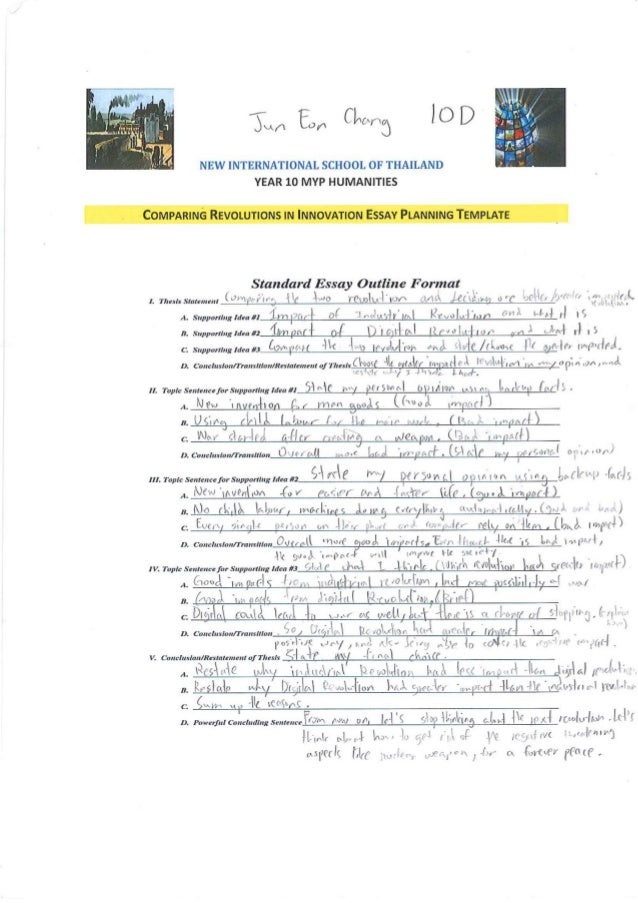 Jun Eon Chang 10D
NEW INTERNATIONAL SCHOOL OF THAILAND
YEAR 10 MYP HUMANITIES
COMPARING REVOLUTIONS IN INNOVATION ESSAY PLANNING TEMPLATE
Standard Essay Outline Format
I. Thesis Statement Comparing the two revolution and deciding one better/greater impacted revolution.
A. Supporting Idea #1 Impact of Industrial Revolution and what it is
B. Supporting Idea #2 Impact of Digital Revolution and what it is
C. Supporting Idea #3 Compare the two revolution and state/choose the greater impacted.
D. Conclusion/Transition/Restatement of Thesis Choose the greater impacted revolution in my opinion, and
restate why I
II. Topic Sentence for Supporting Idea #1 State my personal opinion using backup facts.
A. New invention for man goods (Good impact)
B. Using child labour for the main work. (Bad impact)
C. War started after creating a weapon. (Bad impact)
D. Conclusion/Transition Overall more bad impact. (State my personal opinion)
III. Topic Sentence for Supporting Idea #2 State my personal opinion using backup facts
A. New invention for easier and faster life. (good impact)
B. No child labour, machines doing everything automatically. (Good and bad)
C. Every single person on their phone and computer rely on them. (bad impact)
D. Conclusion/Transition Overall more good impacts. Even though there is bad impact,
the good impact will improve the society.
IV. Topic Sentence for Supporting Idea #3 State what I think. (Which revolution had greater impact)
A. Good impacts from industrial revolution, but more possibility of war
B. Good impacts from digital Revolution, (Brief)
C. Digital could lead to war as well, but there is a chance of stopping. (Explain
D. Conclusion/Transition So, Digital Revolution had greater impact in a
positive way, and also being able to the negative impact.
V. Conclusion/Restatement of Thesis State my final choice.
A. Restate why industrial Revolution had less impact than digital revolution.
B. Restate why Digital Revolution had greater impact than the industrial revolution
C. Sum up the reasons.
D. Powerful Concluding Sentence From now on, let's stop thinking about the next revolution. Let's
think about how to get rid of the negative threatening
aspects like nuclear weapon, for a forever peace.